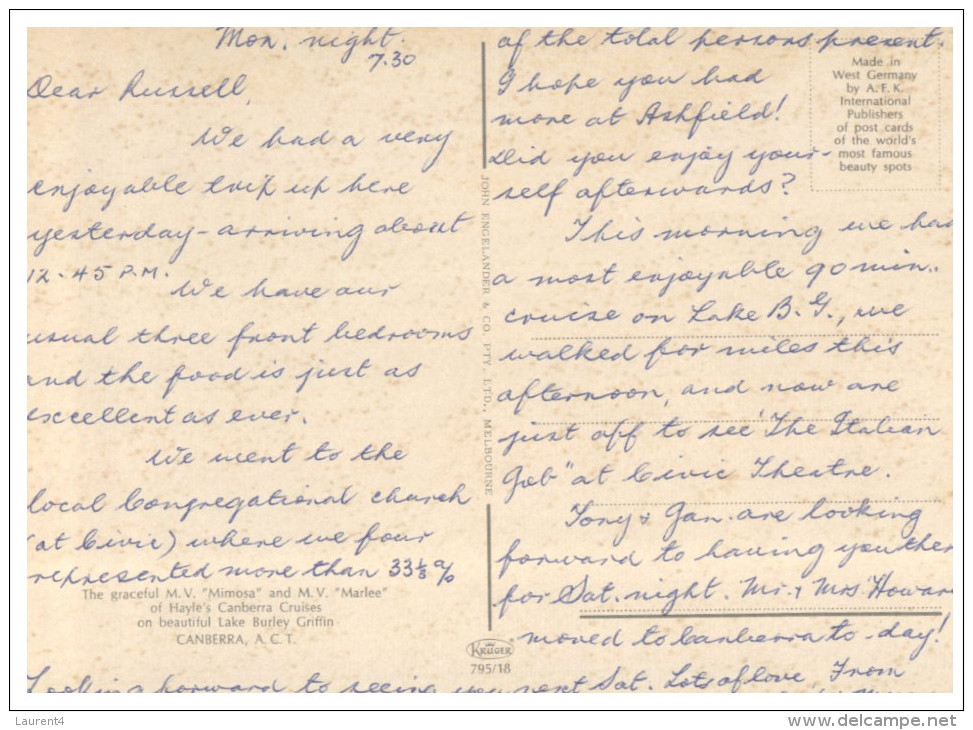 Mon. night.
7.30
Dear Russell,
We had a very
enjoyable trip up here
yesterday - arriving about
12.45 P.M.
We have our
usual three front bedrooms
and the food is just as
excellent as ever.
We went to the
local Congregational church
(at Civic) where we four
represented more than 33⅓ %
The graceful M.V. "Mimosa" and M.V. "Marlee"
of Hayle's Canberra Cruises
on beautiful Lake Burley Griffin
CANBERRA, A.C.T.
Looking forward to seeing you next Sat. Lots of love, From
JOHN ENGELANDER & CO. PTY. LTD., MELBOURNE
KRÜGER
795/18
of the total persons present.
I hope you had
more at Ashfield!
Did you enjoy your-
self afterwards?
This morning we had
a most enjoyable 90 min..
cruise on Lake B.G., we
walked for miles this
afternoon, and now are
just off to see 'The Italian
Job" at Civic Theatre.
Tony & Jan. are looking
forward to having you there
for Sat. night. Mr. & Mrs Howard
moved to Canberra to-day!
Made in
West Germany
by A.F.K.
International
Publishers
of post cards
of the world's
most famous
beauty spots
Laurent4
www.delcampe.net